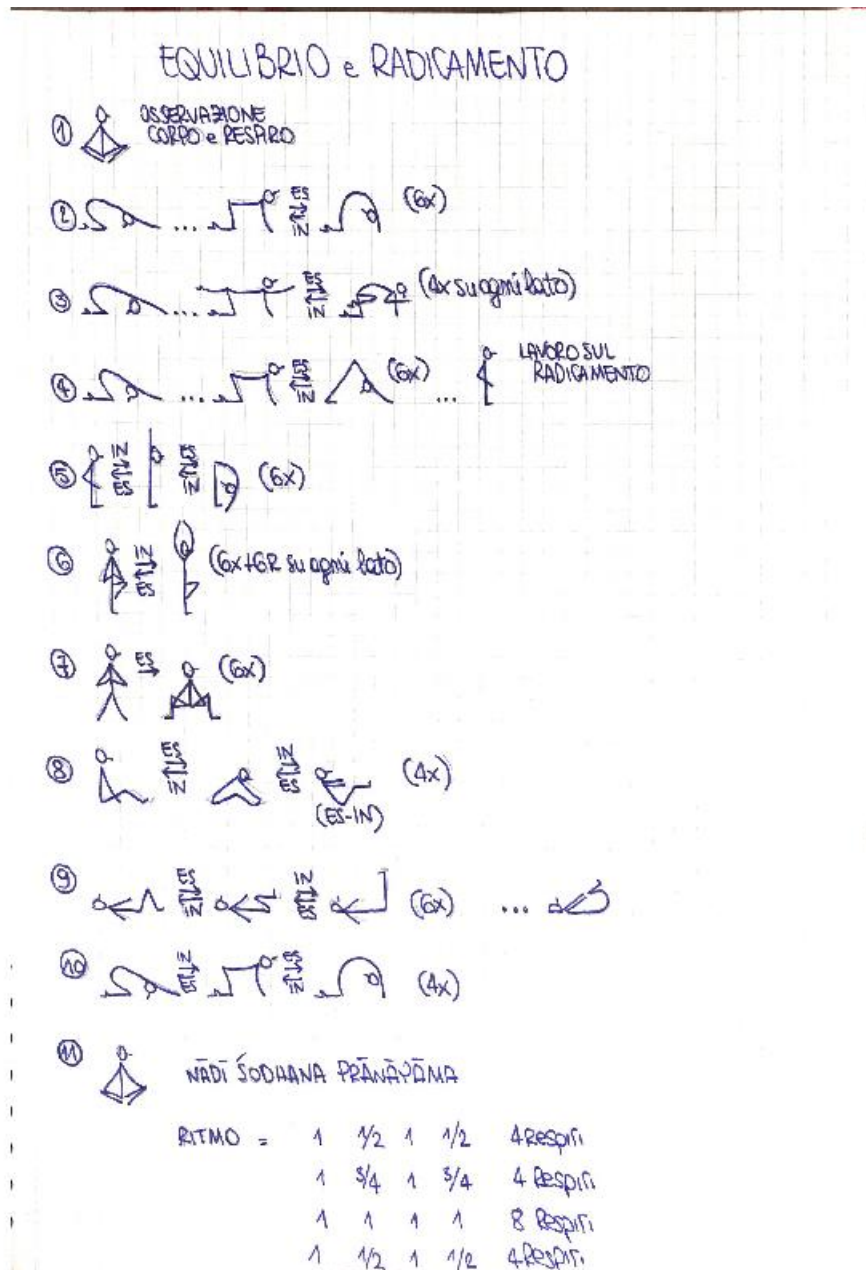 EQUILIBRIO e RADICAMENTO
① OSSERVAZIONE
CORPO e RESPIRO
② ... ES IN (6x)
③ ... ES IN (4x su ogni lato)
④ ... ES IN (6x) ... LAVORO SUL
RADICAMENTO
⑤ IN ES ES IN (6x)
⑥ IN ES (6x+6R su ogni lato)
⑦ ES (6x)
⑧ ES IN IN ES (4x)
(ES-IN)
⑨ ES IN IN ES (6x) ...
⑩ IN ES ES IN (4x)
⑪ NĀDĪ ŚODHANA PRĀNĀYĀMA
RITMO = 1 1/2 1 1/2 4 Respiri
1 3/4 1 3/4 4 Respiri
1 1 1 1 8 Respiri
1 1/2 1 1/2 4 Respiri